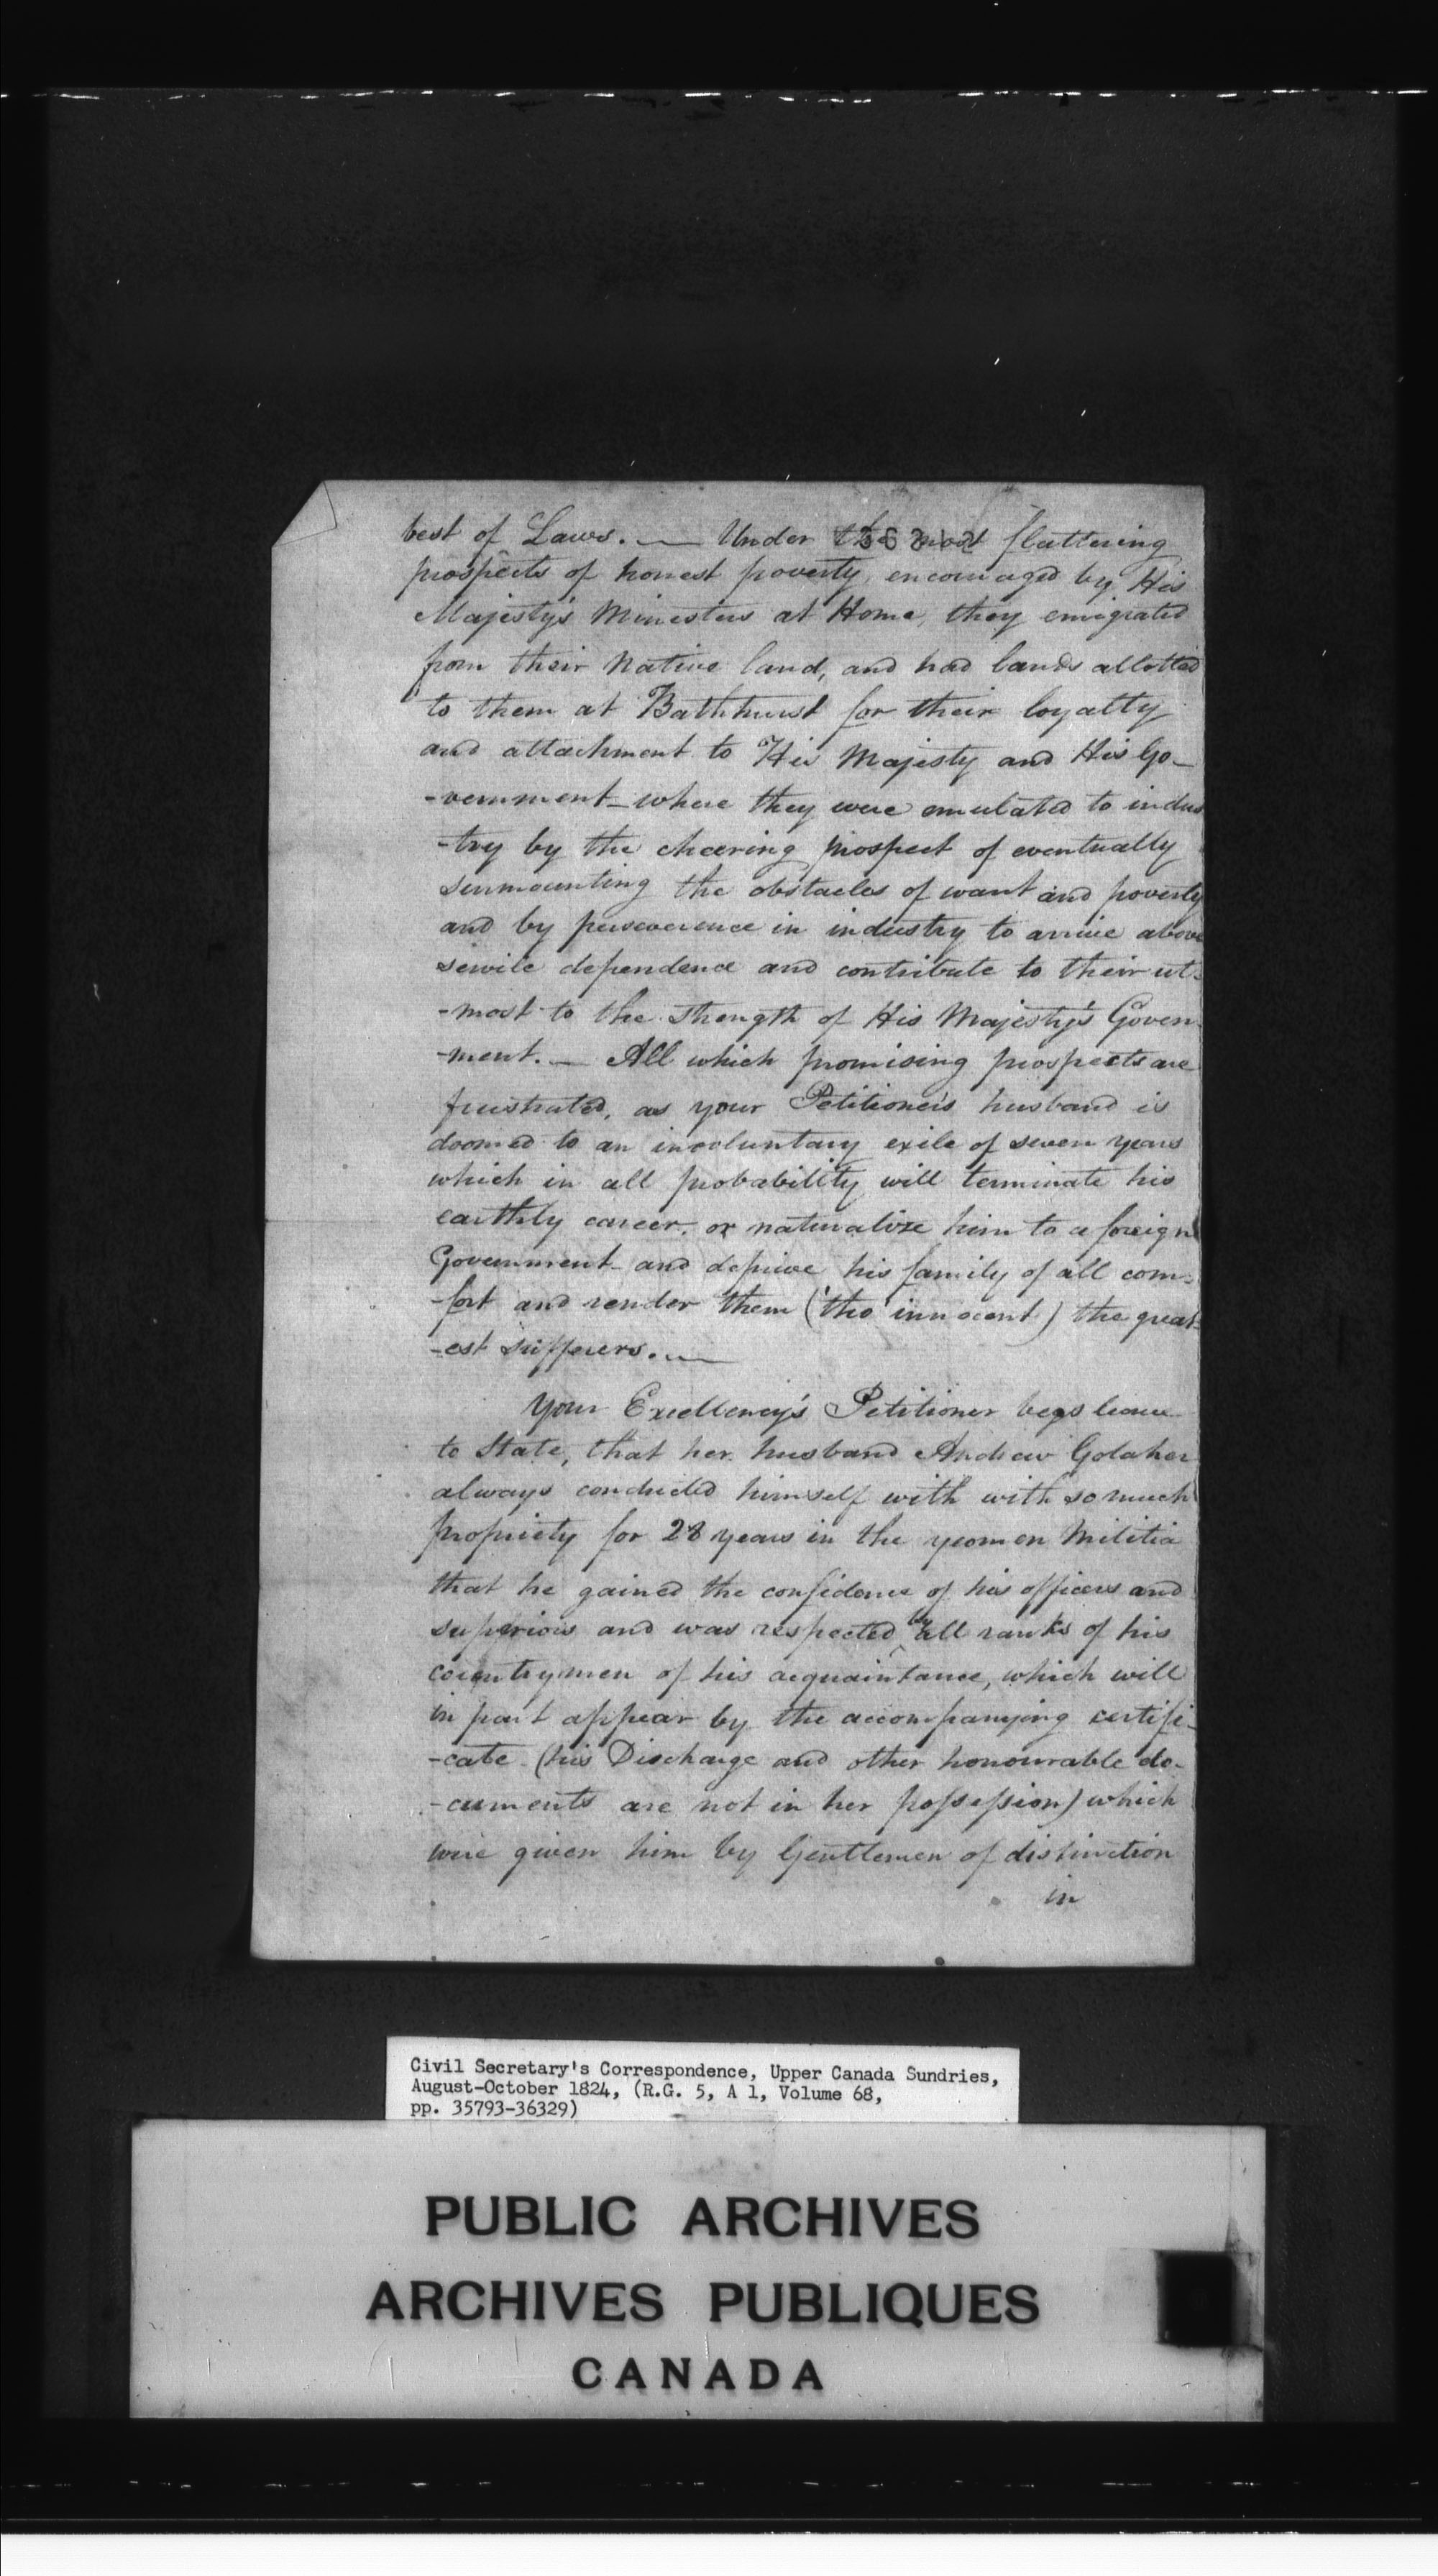 best of Laws. — Under the most flattering
prospects of honest poverty, encouraged by His
Majesty's Ministers at Home, they emigrated
from their Native land, and had lands allotted
to them at Bathhurst for their loyalty
and attachment to His Majesty and His Go-
-vernment - where they were emulated to indus
-try by the cheering prospect of eventually
surmounting the obstacles of want and poverty
and by perseverence in industry to arrive above
servile dependence and contribute to their ut-
-most to the strength of His Majesty's Govern-
-ment. — All which promising prospects are
frustrated, as your Petitioner's husband is
doomed to an involuntary exile of seven years
which in all probability will terminate his
earthly career, or naturalize him to a foreign
Government - and deprive his family of all com-
-fort and render them ('tho innocent) the great-
-est sufferers. —
Your Excellency's Petitioner begs leave
to State, that her husband Andrew Golaher
always conducted himself with with so much
propriety for 28 years in the yeomen Militia
that he gained the confidence of his officers and
superiors and was respected by all ranks of his
countrymen of his acquaintance, which will
in part appear by the accompanying certifi-
-cate (his Discharge and other honourable do-
-cuments are not in her possession) which
were given him by Gentlemen of distinction
in
Civil Secretary's Correspondence, Upper Canada Sundries,
August-October 1824, (R.G. 5, A 1, Volume 68,
pp. 35793-36329)
PUBLIC ARCHIVES
ARCHIVES PUBLIQUES
CANADA